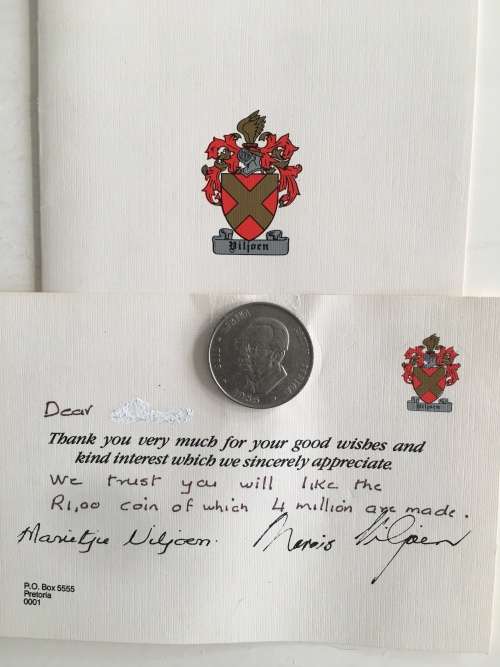 Viljoen
1985
Viljoen
Dear
Thank you very much for your good wishes and
kind interest which we sincerely appreciate.
We trust you will like the
R1,00 coin of which 4 million are made.
Marietjie Viljoen. Marais Viljoen
P.O. Box 5555
Pretoria
0001